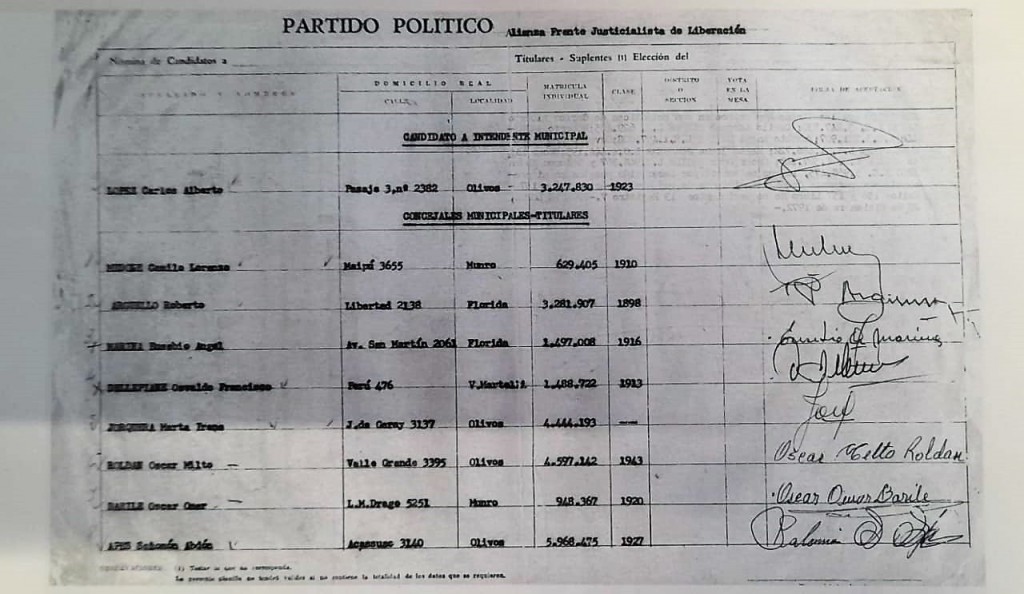 PARTIDO POLITICO Alianza Frente Justicialista de Liberación
Nómina de Candidatos a Titulares - Suplentes (1) Elección del
APELLIDO Y NOMBRES DOMICILIO REAL MATRICULA INDIVIDUAL CLASE DISTRITO O SECCION VOTA EN LA MESA FIRMA DE ACEPTACION
CALLE LOCALIDAD
CANDIDATO A INTENDENTE MUNICIPAL
LOPEZ Carlos Alberto Pasaje 3,nº 2382 Olivos 3.247.830 1923
CONCEJALES MUNICIPALES-TITULARES
Camilo Lorenzo Maipú 3655 Munro 629.405 1910
ARGUELLO Roberto Libertad 2138 Florida 3.281.907 1898
MARINA Eusebio Angel Av. San Martín 2061 Florida 1.497.008 1916
DELLEPIANE Osvaldo Francisco Perú 476 V.Martelli 1.488.722 1913
JORQUERA Marta Irene J.de Garay 3137 Olivos 4.444.193 ---
ROLDAN Oscar Milto Valle Grande 3395 Olivos 4.597.142 1943 Oscar Melto Roldan
BARILE Oscar Omar L.M.Drago 5251 Munro 948.367 1920 Oscar Omar Barile
APES Salomón Abdón Acassuso 3140 Olivos 5.968.475 1927
(1) Testar lo que no corresponda.
La presente planilla no tendrá validez si no contiene la totalidad de los datos que se requieren.